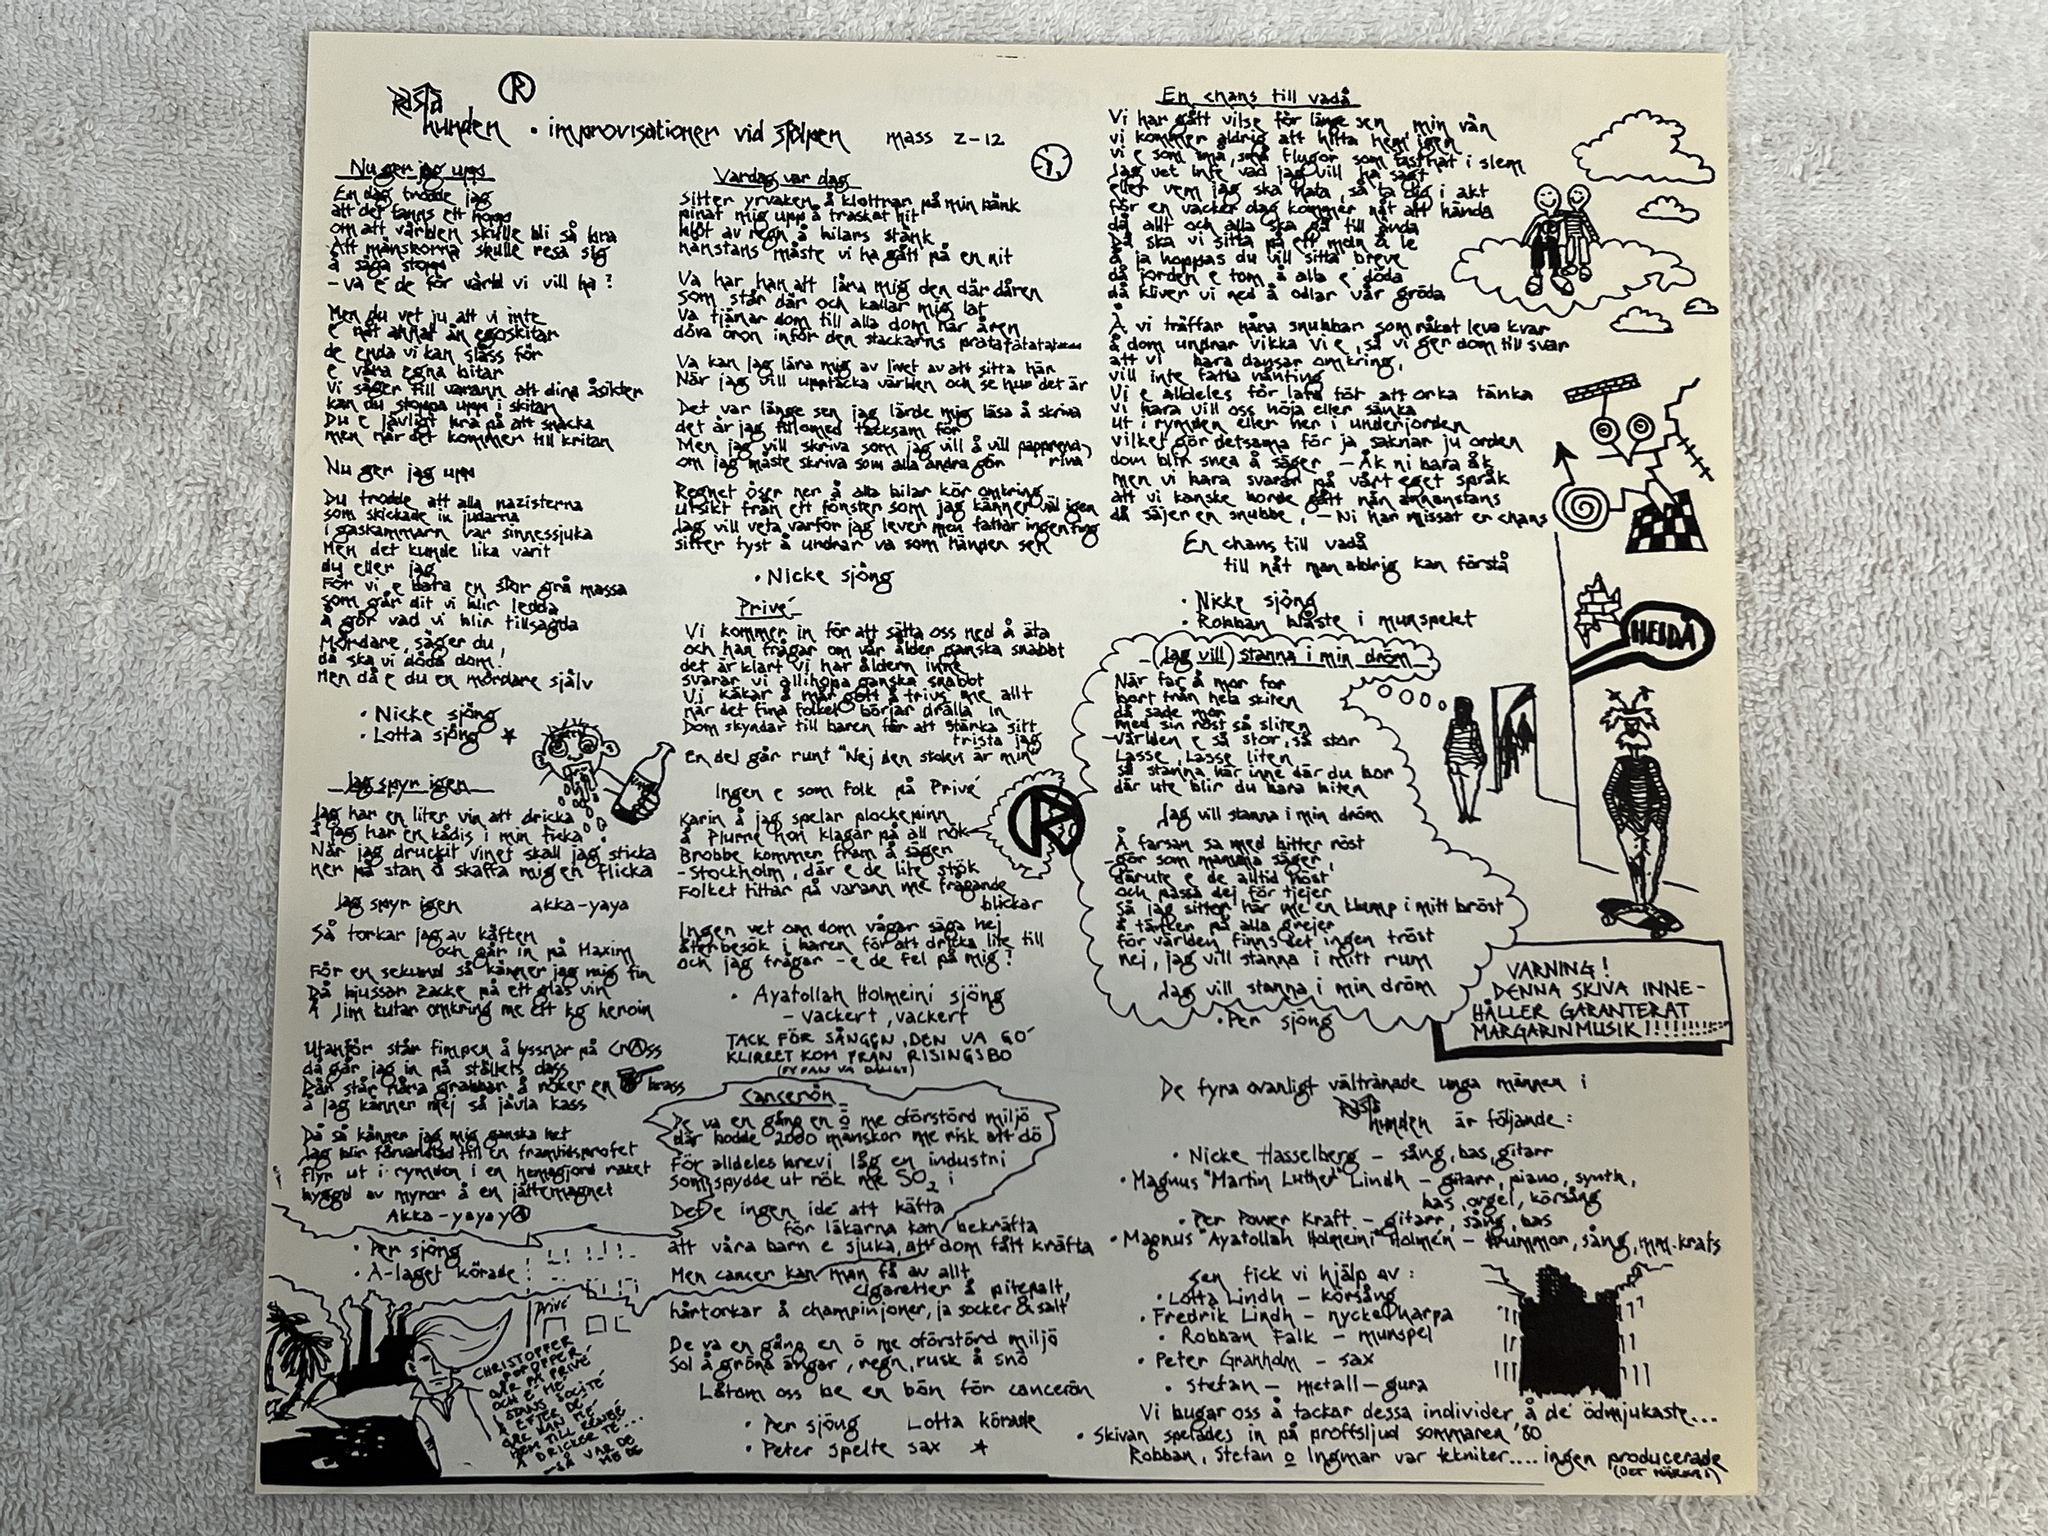 Rasta
hunden • improvisationer vid stolpen mass z-12
Nu ger jag upp
En dag trodde jag
att det fanns ett hopp
om att världen skulle bli så bra
Att mänskorna skulle resa sig
å säga stopp
- va e de för värld vi vill ha?
Men du vet ju att vi inte
e nåt annat än egoskitar
de enda vi kan slåss för
e våra egna bitar
Vi säger till varann att dina åsikter
kan du stoppa upp i skiten
Du e jävligt bra på att snacka
men när det kommer till kritan
Nu ger jag upp
Du trodde att alla nazisterna
som skickade in judarna
i gaskammarn var sinnessjuka
Men det kunde lika varit
du eller jag
För vi e bara en stor grå massa
som går dit vi blir ledda
å gör vad vi blir tillsagda
Mördare, säger du,
då ska vi döda dom.
Men då e du en mördare själv
• Nicke sjöng
• Lotta sjöng *
Jag spyr igen
Jag har en liter vin att dricka
å jag har en kådis i min ficka
När jag druckit vinet skall jag sticka
ner på stan å skaffa mig en flicka
Jag spyr igen akka-yaya
Så torkar jag av käften
och går in på Maxim
För en sekund så känner jag mig fin
Då bjussar Zacke på ett glas vin
Å Jim kutar omkring me ett kg heroin
Utanför står fimpen å lyssnar på Crass
då går jag in på ställets dass
Där står nåra grabbar å röker en brass
å jag känner mej så jävla kass
Då så känner jag mig ganska het
Jag blir förvandlad till en framtidsprofet
flyr ut i rymden i en hemgjord raket
byggd av myror å en jättemagnet
Akka-yayaya
• Per sjöng
• A-laget körade
Privé
CHRISTOPPER
POPOPPER
VAR PÅ PRIVÉ
OCH E ME
I STANS SOCITÉ
Å EFTER DE
GÅR HAN ME
HEM TILL RENBÉ
Å DRICKER TE...
-SÅ VAR DE
ME DE
Vardag var dag
Sitter yrvaken å klottrar på min bänk
pinat mig upp å traskat hit
blöt av regn å bilars stänk
nånstans måste vi ha gått på en nit
Va har han att lära mig den där dåren
Som står där och kallar mig lat
Va tjänar dom till alla dom här åren
döva öron inför den stackarns pratatatatat
Va kan jag lära mig av livet av att sitta här
När jag vill upptäcka världen och se hur det är
Det var länge sen jag lärde mig läsa å skriva
det är jag tillomed tacksam för
Men jag vill skriva som jag vill å vill papprena
riva
om jag måste skriva som alla andra gör
Regnet öser ner å alla bilar kör omkring
utsikt från ett fönster som jag känner väl igen
Jag vill veta varför jag lever men fattar ingenting
sitter tyst å undrar va som händer sen
• Nicke sjöng
Privé
Vi kommer in för att sätta oss ned å äta
och han frågar om vår ålder ganska snabbt
det är klart vi har åldern inne
svarar vi allihopa ganska snabbt
Vi käkar å mår gott å trivs me allt
när det fina folket börjar drälla in
Dom skyndar till baren för att stärka sitt
trista jag
En del går runt "Nej den stolen är min"
Ingen e som folk på Privé
Karin å jag spelar plockepinn
å Plurne hon klagar på all rök
Brobbe kommer fram å säger
- Stockholm, där e de lite stök
Folket tittar på varann me frågande
blickar
Ingen vet om dom vågar säga hej
återbesök i baren för att dricka lite till
och jag frågar - e de fel på mig?
• Ayatollah Holmeini sjöng
- vackert, vackert
TACK FÖR SÅNGEN, DEN VA GO'
KLIRRET KOM FRÅN RISINGSBO
(FY FAN VA DÅLIGT)
Cancerön
De va en gång en ö me oförstörd miljö
där bodde 2000 mänskor me risk att dö
För alldeles brevi låg en industri
som spydde ut rök me SO2 i
Det e ingen idé att käfta
för läkarna kan bekräfta
att våra barn e sjuka, att dom fått kräfta
Men cancer kan man få av allt
cigaretter å pitepalt,
hårtorkar å champinjoner, ja socker & salt
De va en gång en ö me oförstörd miljö
Sol å gröna ängar, regn, rusk å snö
Låtom oss be en bön för cancerön
• Per sjöng Lotta körade
• Peter spelte sax *
En chans till vadå
Vi har gått vilse för länge sen, min vän
vi kommer aldrig att hitta hem igen
vi e som små, små flugor som fastnat i slem
Jag vet inte vad jag vill ha sagt
eller vem jag ska hata, så ta dig i akt
för en vacker dag kommer nåt att hända
då allt och alla ska gå till ända
Då ska vi sitta på ett moln å le
å ja hoppas du vill sitta breve
då jorden e tom å alla e döda
då kliver vi ned å odlar vår gröda
Å vi träffar nåra snubbar som råkat leva kvar
å dom undrar vikka vi e, så vi ger dom till svar
att vi bara dansar omkring,
vill inte fatta nånting
Vi e alldeles för lata för att orka tänka
vi bara vill oss höja eller sänka
ut i rymden eller ner i underjorden
vilket gör detsamma för ja saknar ju orden
dom blir snea å säger - Åk ni bara åk
men vi bara svarar på vårt eget språk
att vi kanske borde gått nån annanstans
då säjer en snubbe, - Ni har missat er chans
En chans till vadå
till nåt man aldrig kan förstå
• Nicke sjöng
• Robban blåste i munspelet
HEJDÅ
(Jag vill) stanna i min dröm
När far å mor for
bort från hela skiten
då sade mor
med sin röst så sliten
- världen e så stor, så stor
Lasse, Lasse liten
Så stanna här inne där du bor
där ute blir du bara biten
Jag vill stanna i min dröm
Å farsan sa med bitter röst
- gör som mamma säger,
därute e de alltid höst
och passa dej för tjejer
Så jag sitter här me en klump i mitt bröst
å tänker på alla grejer
för världen finns det ingen tröst
nej, jag vill stanna i mitt rum
Jag vill stanna i min dröm
• Per sjöng
VARNING!
DENNA SKIVA INNE-
HÅLLER GARANTERAT
MARGARINMUSIK!!!!!!!!!!
De fyra ovanligt vältränade unga männen i
Rasta
hunden är följande:
• Nicke Hasselberg - sång, bas, gitarr
• Magnus "Martin Luther" Lindh - gitarr, piano, synth,
bas, orgel, körsång
• Per Power Kraft - gitarr, sång, bas
• Magnus "Ayatollah Holmeini" Holmén - trummor, sång, mm. krafs
Sen fick vi hjälp av:
• Lotta Lindh - körsång
• Fredrik Lindh - nyckelharpa
• Robban Falk - munspel
• Peter Granholm - sax
• Stefan - metall-gura
Vi bugar oss å tackar dessa individer å de ödmjukaste...
• Skivan spelades in på proffsljud sommaren '80
Robban, Stefan o Ingmar var tekniker.... ingen producerade
(DET MÄRKS!)